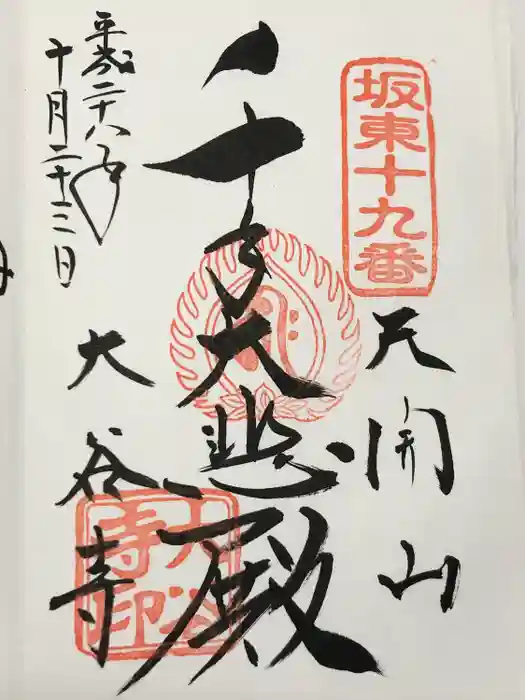 坂東十九番
天開山
千手大悲殿
平成二十八年
十月二十三日
大谷寺
大谷
寺印